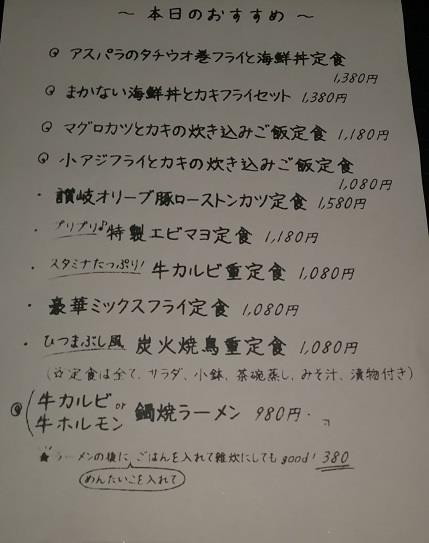 ～ 本日のおすすめ ～
◎ アスパラのタチウオ巻フライと海鮮丼定食
1,380円
◎ まかない海鮮丼とカキフライセット 1,380円
◎ マグロカツとカキの炊き込みご飯定食 1,180円
◎ 小アジフライとカキの炊き込みご飯定食
1,080円
・ 讃岐オリーブ豚ローストンカツ定食 1,580円
・ プリプリ♪ 特製エビマヨ定食 1,180円
・ スタミナたっぷり! 牛カルビ重定食 1,080円
・ 豪華ミックスフライ定食 1,080円
・ ひつまぶし風 炭火焼鳥重定食 1,080円
(☆定食は全て、サラダ、小鉢、茶碗蒸し、みそ汁、漬物付き)
◎ 牛カルビ or
牛ホルモン 鍋焼ラーメン 980円.
★ ラーメンの後に、ごはんを入れて雑炊にしてもgood! 380
めんたいこを入れて